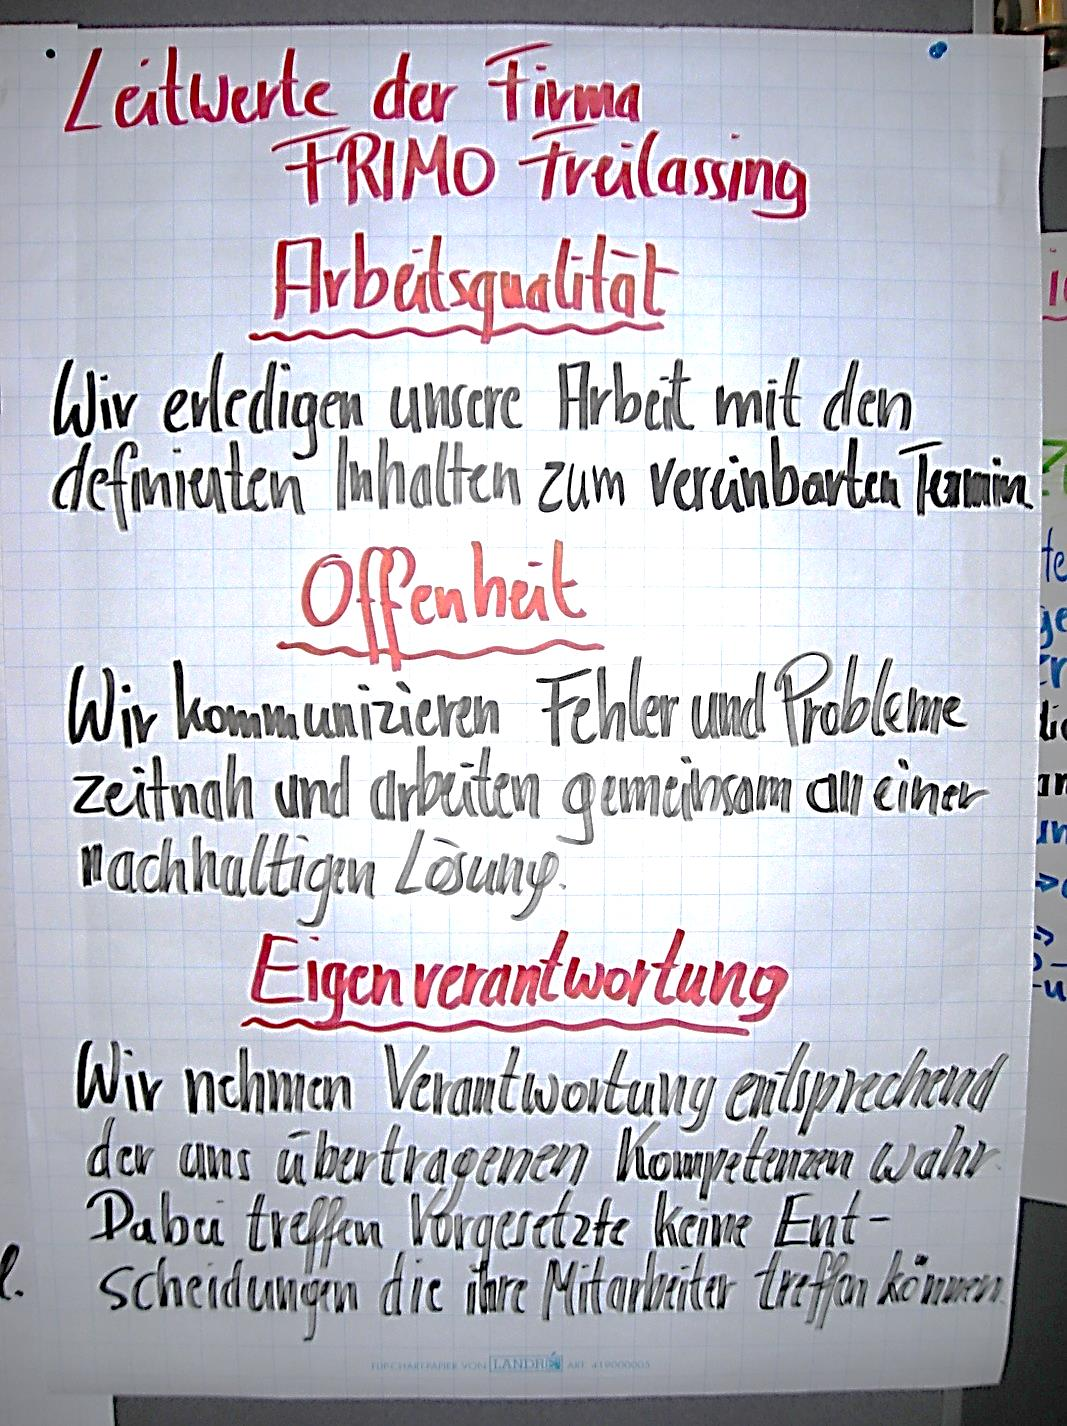 Leitwerte der Firma
FRIMO Freilassing
Arbeitsqualität
Wir erledigen unsere Arbeit mit den
definierten Inhalten zum vereinbarten Termin
Offenheit
Wir kommunizieren Fehler und Probleme
zeitnah und arbeiten gemeinsam an einer
nachhaltigen Lösung.
Eigenverantwortung
Wir nehmen Verantwortung entsprechend
der uns übertragenen Kompetenzen wahr.
Dabei treffen Vorgesetzte keine Ent-
scheidungen die ihre Mitarbeiter treffen können.
FLIPCHARTPAPIER VON LANDRÉ ART. 419000005